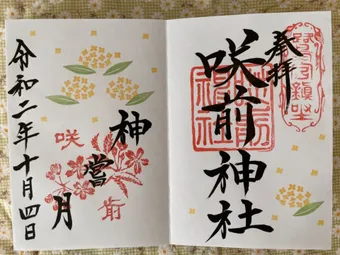 奉拝
咲前神社
神嘗月
咲前
令和二年十月四日